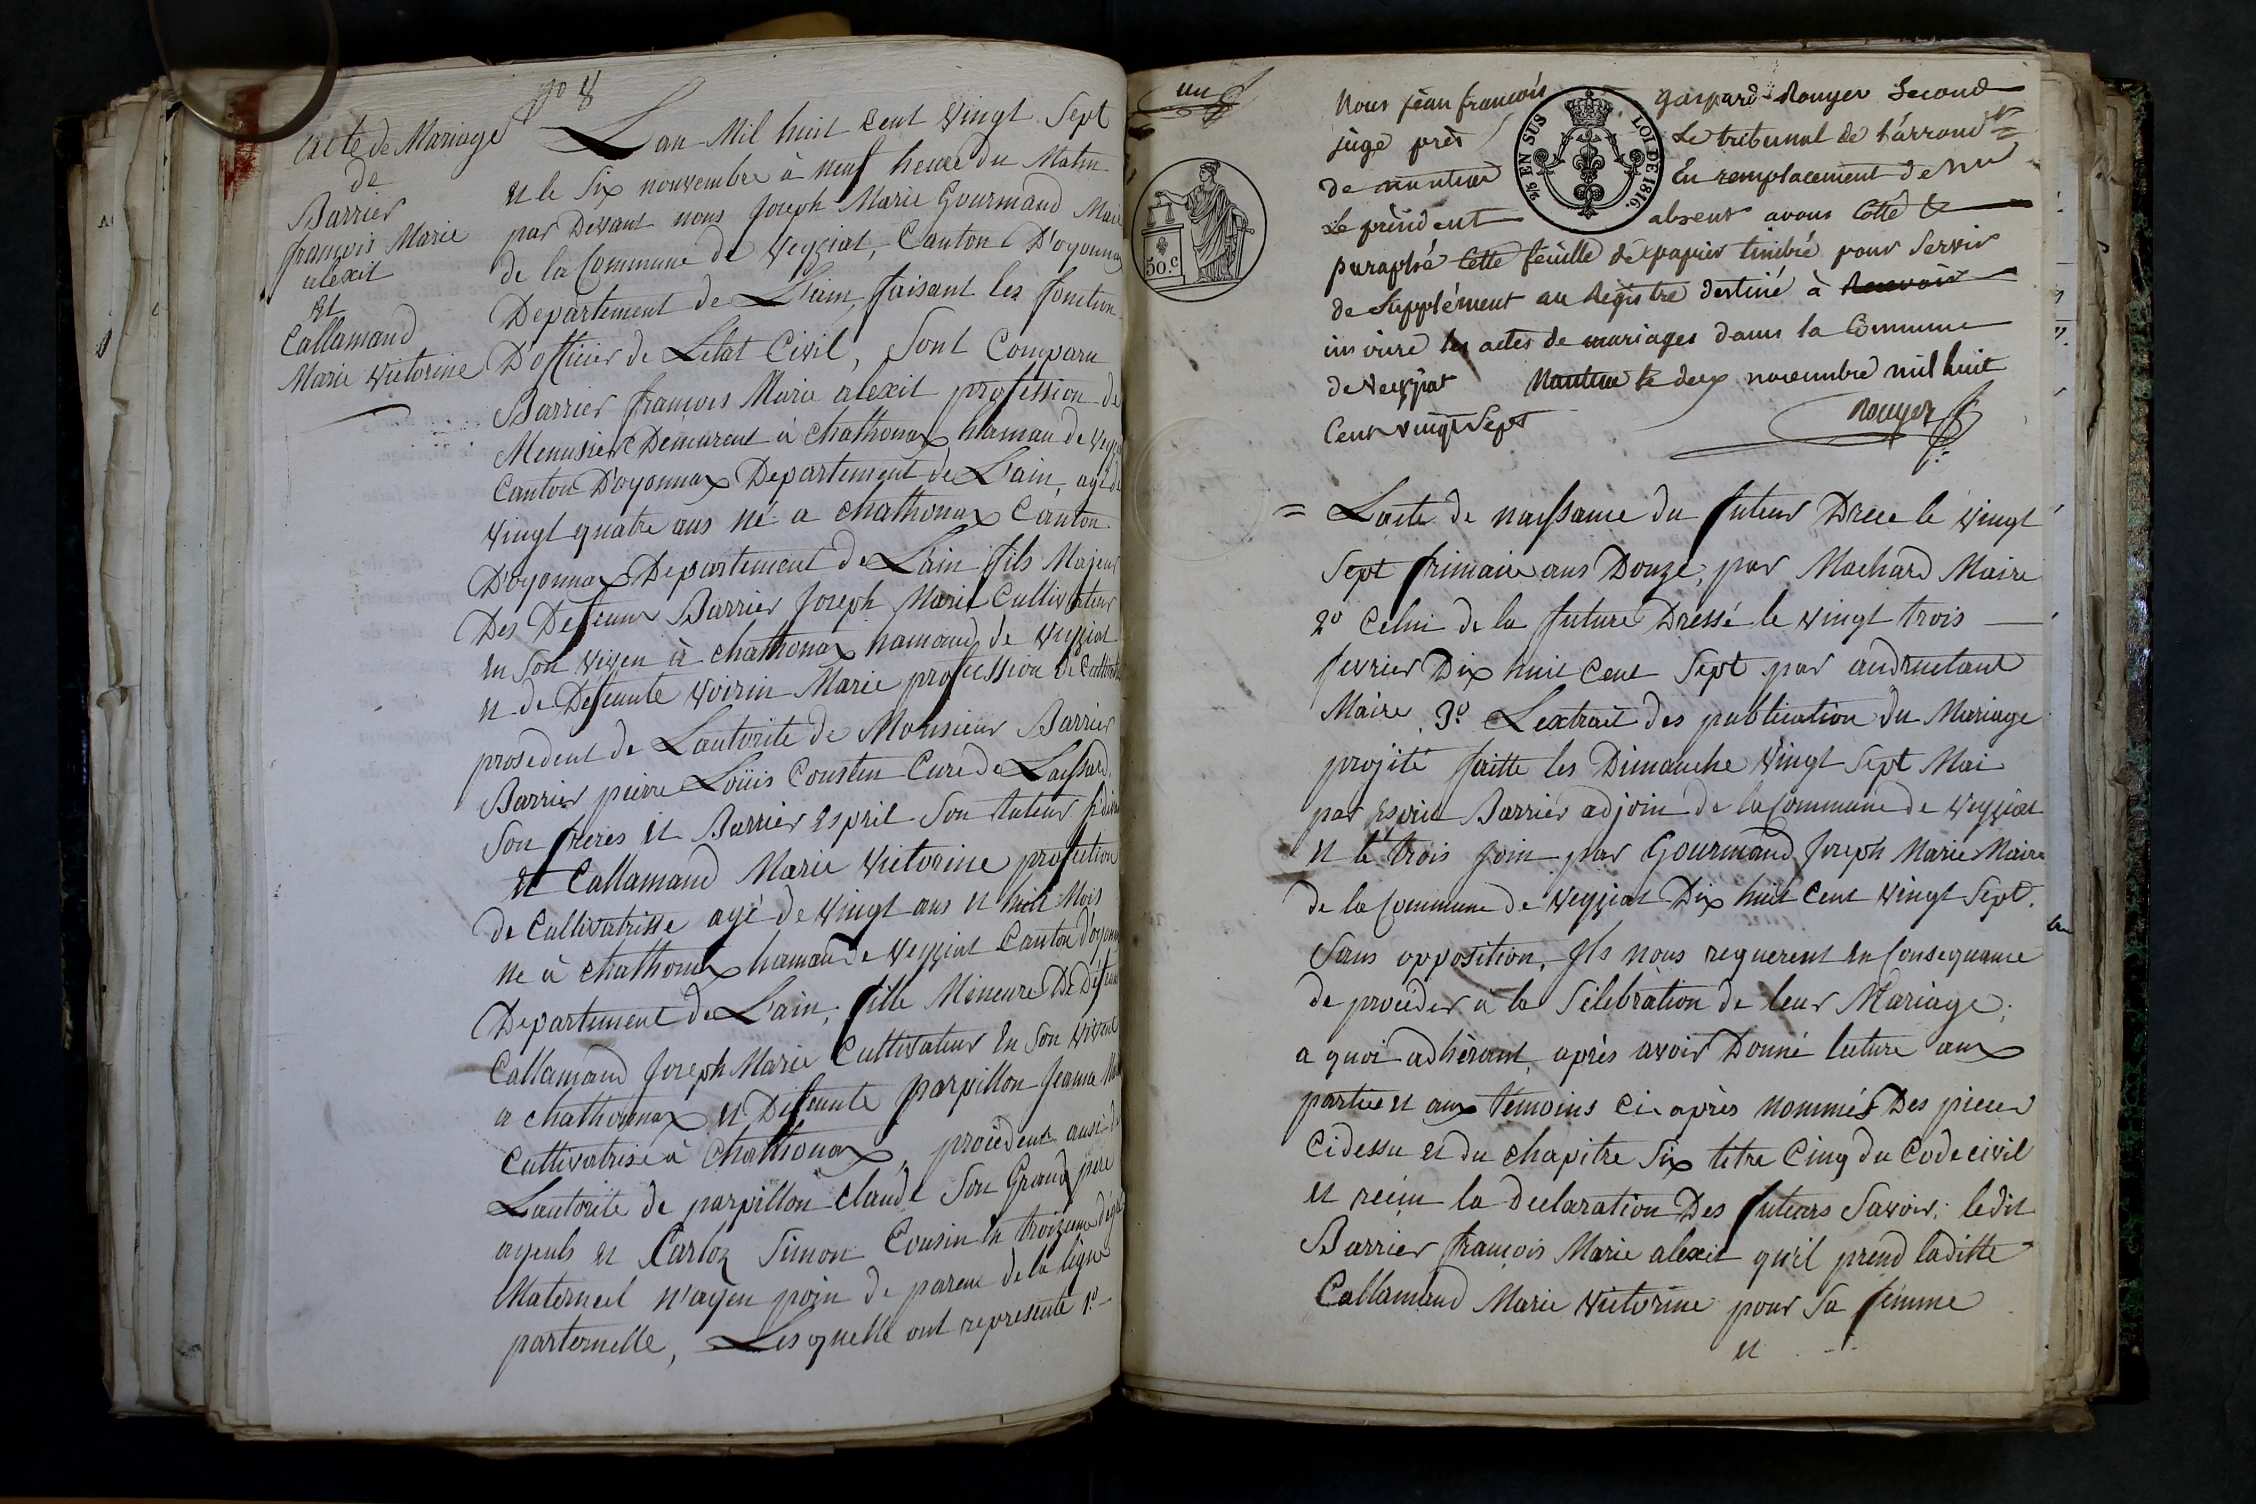 no 8
acte de Mariage
de
Barrier
françois Marie
alexit
Et
Callamand
Marie Victorine
Lan Mil huit cent Vingt Sept
et le Six nouvembre à neuf heure du Matin
par Devant nous Joseph Marie Gourmand Maire
de la Commune de Veyziat, Canton D'oyonnax
Departement de L'ain, faisant les fonction
D'officier de Letat Civil, Sont Comparu
Barrier françois Marie alexit profession de
Menusier Demurent à Chathonax hamau de Veyziat
Canton D'oyonnax Departement de L'ain, agé de
Vingt quatre ans né a Chathonax Canton
D'oyonnax Departement de L'ain fils Majeur
Des Defeunt Barrier Joseph Marie Cultivateur
En Son Viven à Chathonax hamaud de Veyziat
et de Defeunte Voirin Marie profession de Cultivatrice
prosedent de Lautorité de Monsieur Barrier
Barrier pierre Loüis Constin Curé de
Son freres Et Barrier Esprit Son tuteur
Et Callamand Marie Victorine profution
de Cultivatrisse agé de Vingt ans et huit Mois
ne à Chathonax hamau de Veyziat Canton d'oyonnax
Departement de L'ain, fille Mineure De Defeunt
Callamand Joseph Marie Cultivateur En Son Vivent
a Chathonnax et Difeunte parpillon Jeanne
Cultivatrise à Chathonax, procedent ausi de
Lautorité de parpillon Claude Son Grand pere
ayeuls et Carloz Simon Cousin En troizieme degré
Maternel N'ayen poin de parent de la ligne
parternelle, Lesquelle ont representé 1º
un
50.c
2/5 EN SUS
LOI DE 1816.
Nous jean françois gaspard Rouyer Second
juge près Le tribunal de l'arrond
de nantua En remplacement de
Le président absent avons Cotté &
paraphé Cette feuille de papier timbré pour Servir
de Supplément au Registre destiné à Recevoir
inscrire les actes de mariages dans la Commune
de Veyziat Nantua le deux novembre mil huit
Cent vingt Sept
Rouyer
= Lacte de naissance du futeur Drece le Vingt
Sept frimaire ans Douze, par Machard Maire
2º Celui de la future Dressé le Vingt trois
fevrier Dix huit Cent Sept par andruetant
Maire 3º Lextrait des publication du Mariage
projité faitte les Dimanche Vingt Sept Mai
par Esprit Barrier adjoin de la Commune de Veyziat
et le trois join par Gourmand Joseph Marie Maire
de la Commune de Veyziat Dix huit Cent Vingt Sept.
Sans opposition, Ils nous requerent En Consequance
de proceder à la Sélébration de leur Mariage;
a quoi adhèrant, après avoir Donné lecture aux
partie et aux témoins Ci-après nommés Des pieces
Cidessu et du chapitre Six titre Cinq du Code civil
et recu la declaration Des futeurs Savoir; ledit
Barrier françois Marie alexit quil prend laditte
Callamand Marie Victorine pour Sa femme
et